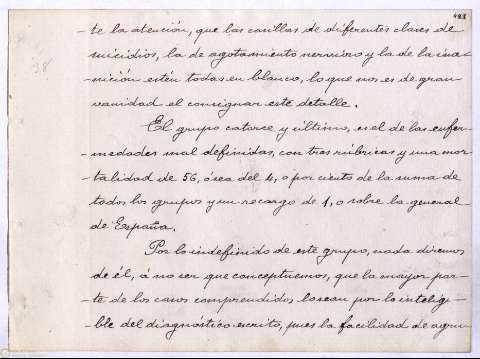 488
38
-te la atención, que las casillas de diferentes clases de
suicidios, la de agotamiento nervioso y la de la ina-
-nición estén todas en blanco, lo que nos es de gran
vanidad el consignar este detalle.
El grupo catorce y último, es el de las enfer-
-medades mal definidas, con tres rúbricas y una mor-
-talidad de 56, ó sea del 4,0 por ciento de la suma de
todos los grupos y un recargo de 1,0 sobre la general
de España.
Por lo indefinido de este grupo, nada diremos
de él, á no ser que conceptuemos, que la mayor par-
-te de los casos comprendidos, lo sean por lo inteligi-
-ble del diagnóstico escrito, pues la facilidad de agru-